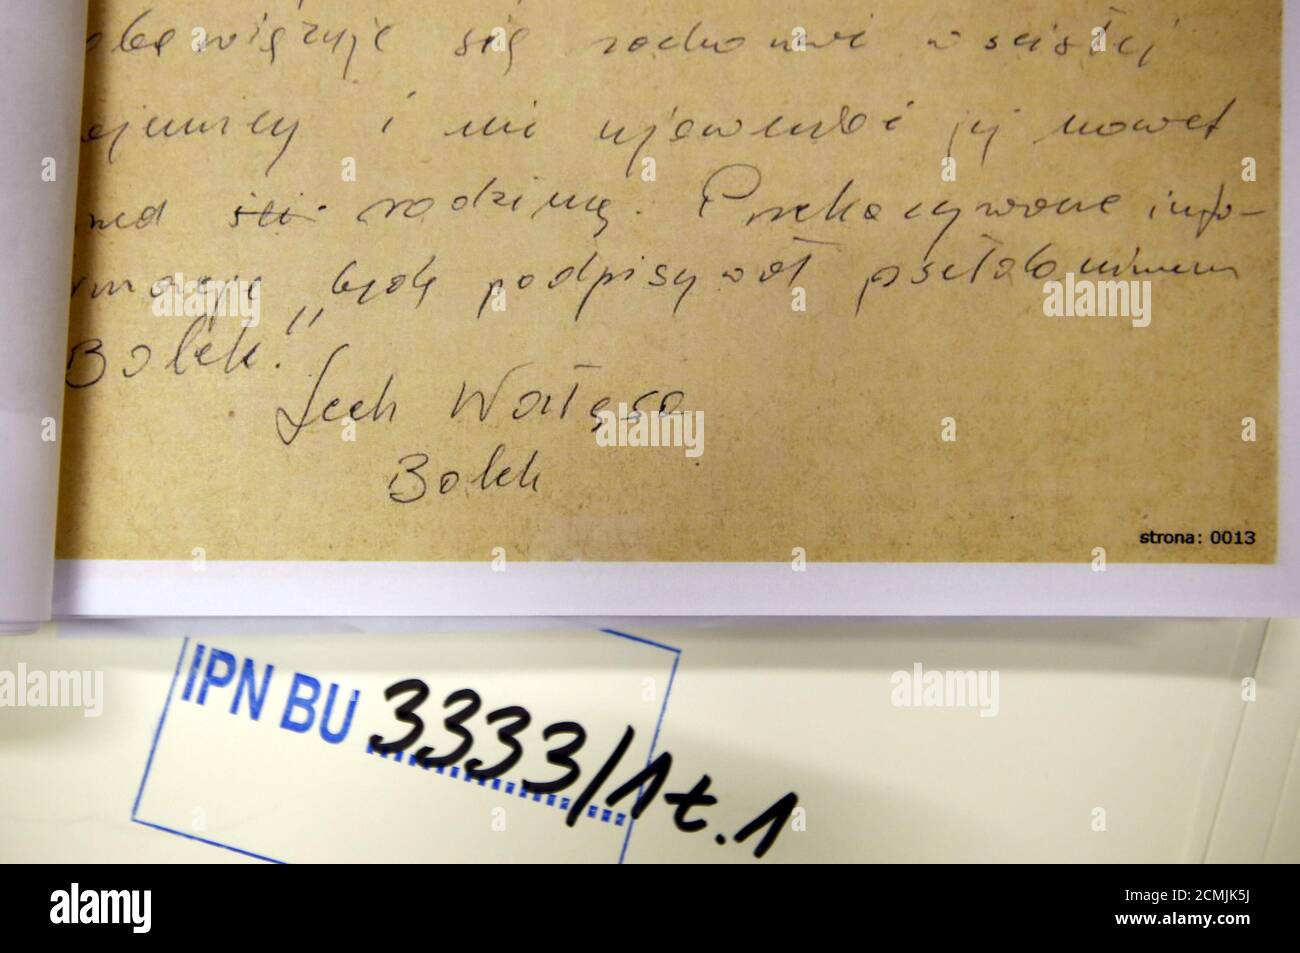 obowiązuje się zachować w ścisłej
ajemnicy i nie ujawniać jej nawet
rodziną. Przekazywane info-
rmacje będę podpisywał pseudonimem
Bolek."
Lech Wałęsa
Bolek
strona: 0013
IPN BU 3333/1 t.1
alamy
Image ID: 2CMJK5J
www.alamy.com